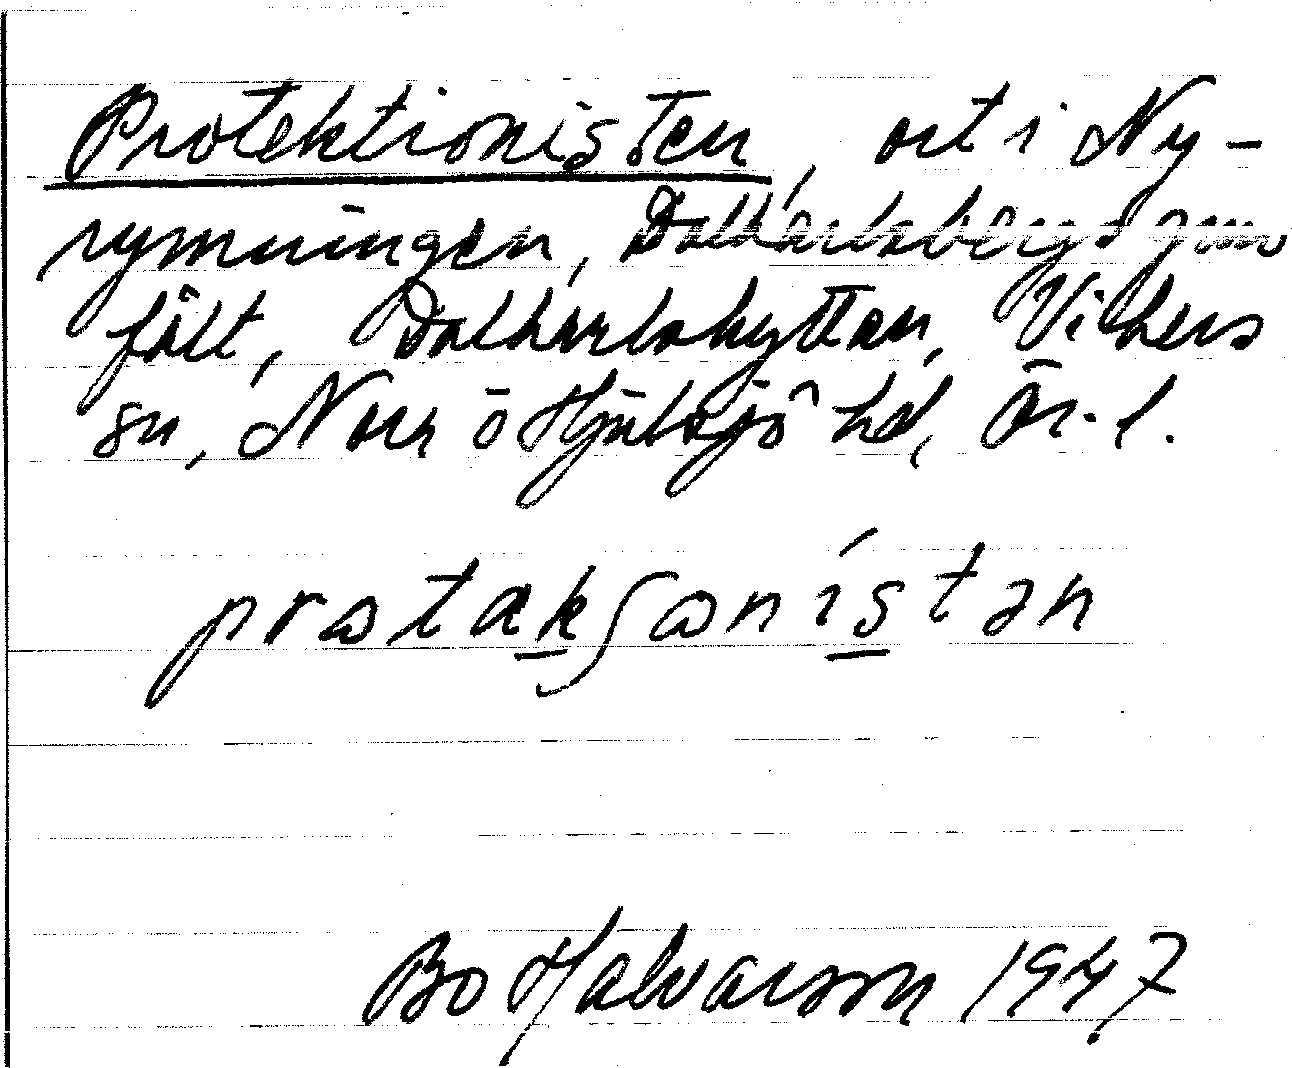 Protektionisten, ort i Ny-
rymningen, Dalkarlsbergs gruv
fält, Dalkarlshyttan, Vikers
sn, Nora o Hjulsjö hd, Ör. l.
protakʃonistən
Bo Halvarson 1947